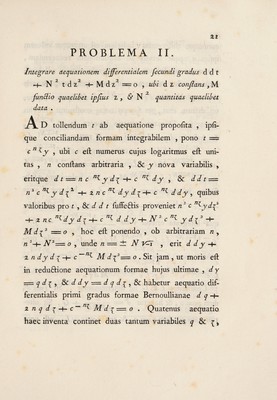 21
PROBLEMA II.
Integrare aequationem differentialem secundi gradus d d t
+ N² t d z² + M d z² = o, ubi d z constans, M
functio quaelibet ipsius z, & N² quantitas quaelibet
data.
AD tollendum t ab aequatione proposita, ipsi-
que conciliandam formam integrabilem, pono t =
c ⁿᶻ y, ubi c est numerus cujus logaritmus est uni-
tas, n constans arbitraria, & y nova variabilis,
eritque d t = n c ⁿᶻ y d z + c ⁿᶻ d y, & d d t =
n² c ⁿᶻ y d z² + 2 n c ⁿᶻ d y d z + c ⁿᶻ d d y, quibus
valoribus pro t, & d d t suffectis proveniet n² c ⁿᶻ y d z²
+ 2 n c ⁿᶻ d y d z + c ⁿᶻ d d y + N² c ⁿᶻ y d z² +
M d z² = o, hoc est ponendo, ob arbitrariam n,
n² + N² = o, unde n = ± N √-1, erit d d y +
2 n d y d z + c ⁻ⁿᶻ M d z² = o. Sit jam, ut moris est
in reductione aequationum formae hujus ultimae, d y
= q d z, & d d y = d q d z, & habetur aequatio dif-
ferentialis primi gradus formae Bernoullianae d q +
2 n q d z + c ⁻ⁿᶻ M d z = o. Quatenus aequatio
haec inventa continet duas tantum variabiles q & z,